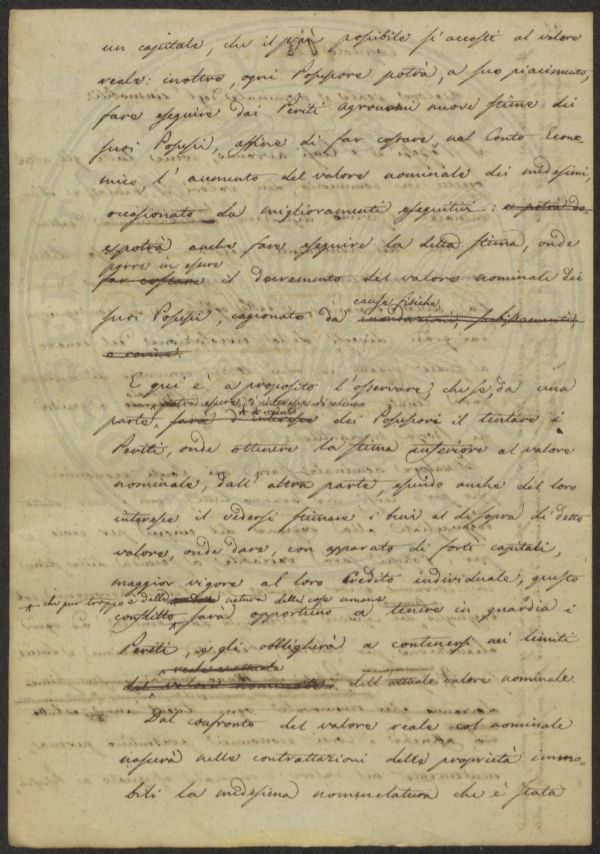 un capitale, che il più possibile si accosti al valore
reale: inoltre, ogni Possessore potrà, a suo piacimento,
fare eseguire dai Periti agronomi nuove stime dei
suoi Possessi, affine di far costare, nel Conto Econo-
mico, l'aumento del valore nominale dei medesimi,
occasionato da miglioramenti eseguitivi: e potrà da
e potrà anche fare eseguire la detta stima, onde
porre in essere
far costare il decremento del valore nominale dei
causa fisiche
suoi Possessi, cagionato da inondazioni, subissamenti,
o rovine.
E qui è, a proposito l'osservare, che se, da una
potrà essere, d'interesse di alcuno
parte, sarà d'interesse dei Possessori il tentare i
Periti, onde ottenere la stima inferiore al valore
nominale, dall'altra parte, essendo anche del loro
interesse il vedersi stimare i beni al di sopra di detto
valore, onde dare, con apparato di forti capitali,
maggior vigore al loro Credito individuale, questo
che pur troppo è della natura delle cose umane
conflitto sarà opportuno a tenere in guardia i
Periti, e gli obbligherà a contenersi nei limiti
del valore nominale dell'attuale valore nominale.
Dal confronto del valore reale col nominale
nascerà nelle contrattazioni delle proprietà immo-
bili la medesima nomenclatura che è stata